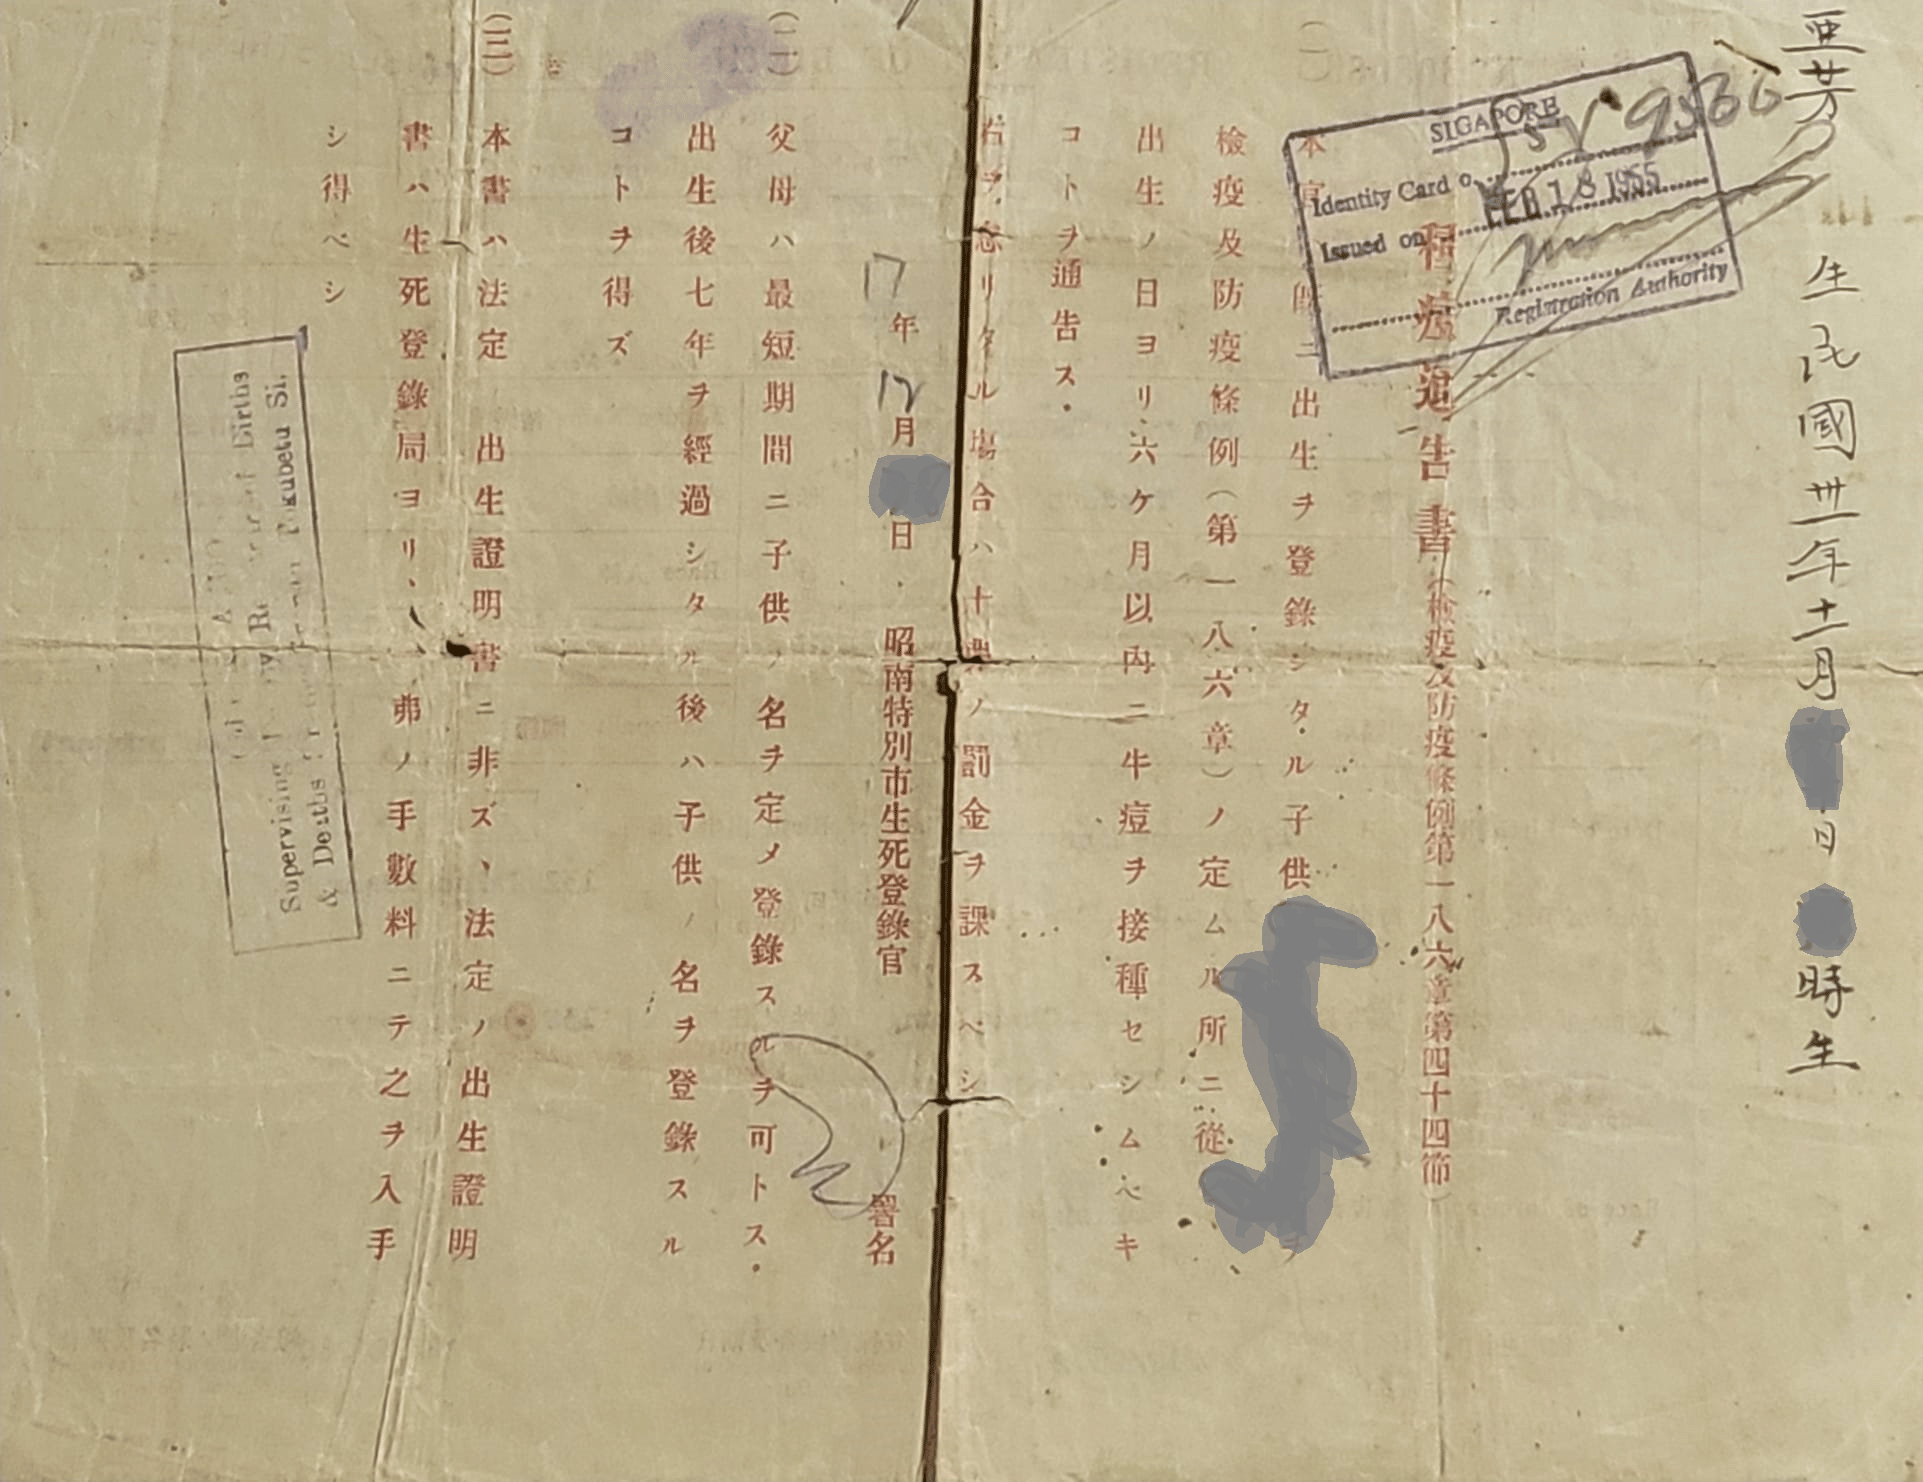 亜芳
生民國卅一年十一月
日
時生
SIGAPORE
Identity Card o.
Issued on FEB 18 1955
Registration Authority
種痘通告書(檢疫及防疫條例第一八六章第四十四節)
(一)
本官ニ出生ヲ登錄シタル子供
ヲ
檢疫及防疫條例(第一八六章)ノ定ムル所ニ從
出生ノ日ヨリ六ケ月以內ニ牛痘ヲ接種セシムベキ
コトヲ通告ス.
右ヲ怠リタル塲合ハ十弗ノ罰金ヲ課スベシ
17年12月
日
昭南特別市生死登錄官
署名
(二)
父母ハ最短期間ニ子供ノ名ヲ定メ登錄スルヲ可トス.
出生後七年ヲ經過シタル後ハ子供ノ名ヲ登錄スル
コトヲ得ズ
(三)
本書ハ法定出生證明書ニ非ズ、法定ノ出生證明
書ハ生死登錄局ヨリ、
弗ノ手數料ニテ之ヲ入手
シ得ベシ
Births
Supervising
& Deaths
Tokubetu Si.